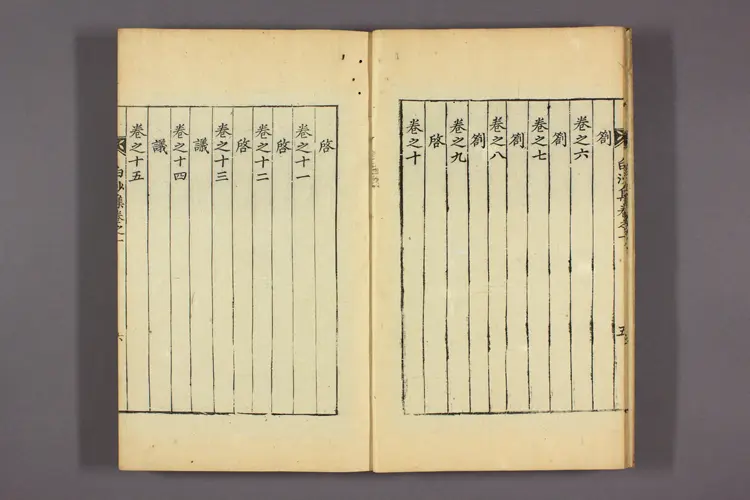 白沙集卷之一
五
劄
卷之六
劄
卷之七
劄
卷之八
劄
卷之九
啓
卷之十
啓
卷之十一
啓
卷之十二
啓
卷之十三
議
卷之十四
議
卷之十五
白沙集卷之一
六